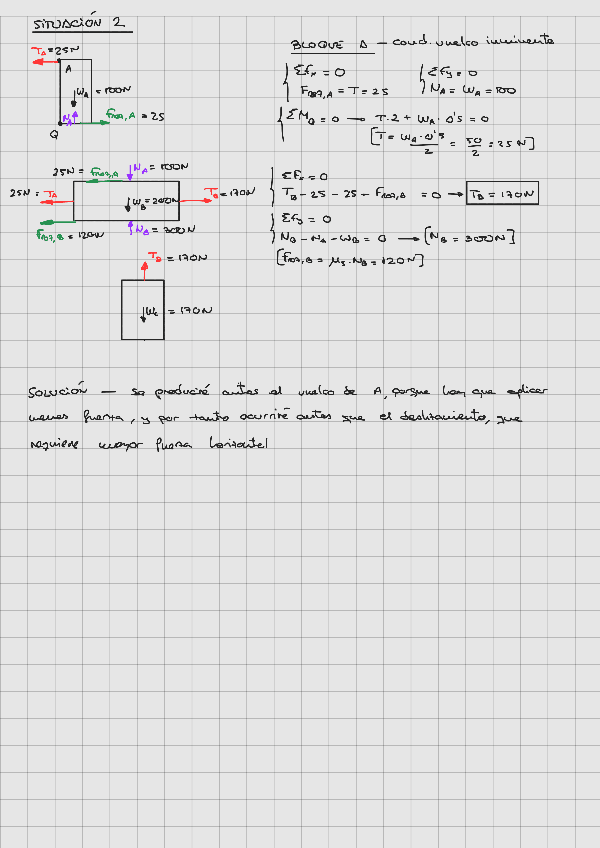 SITUACIÓN 2
BLOQUE A — cond. vuelco inminente
TA = 25N
A
WA = 100N
NA
FROZ,A = 25
Q
ΣFx = 0
FROZ,A = T = 25
ΣFy = 0
NA = WA = 100
ΣMQ = 0 → T·2 + WA·0'5 = 0
[T = WA·0'5/2 = 50/2 = 25N]
25N = FROZ,A
NA = 100N
25N = TA
WB = 200N
TB = 170N
FROZ,B = 120N
NB = 300N
ΣFx = 0
TB - 25 - 25 - FROZ,B = 0 → TB = 170N
ΣFy = 0
NB - NA - WB = 0 → [NB = 300N]
[FROZ,B = μs·NB = 120N]
TB = 170N
Wc = 170N
SOLUCIÓN — se producirá antes el vuelco de A, porque hay que aplicar
menos fuerza, y por tanto ocurrirá antes que el deslizamiento, que
requiere mayor fuerza horizontal